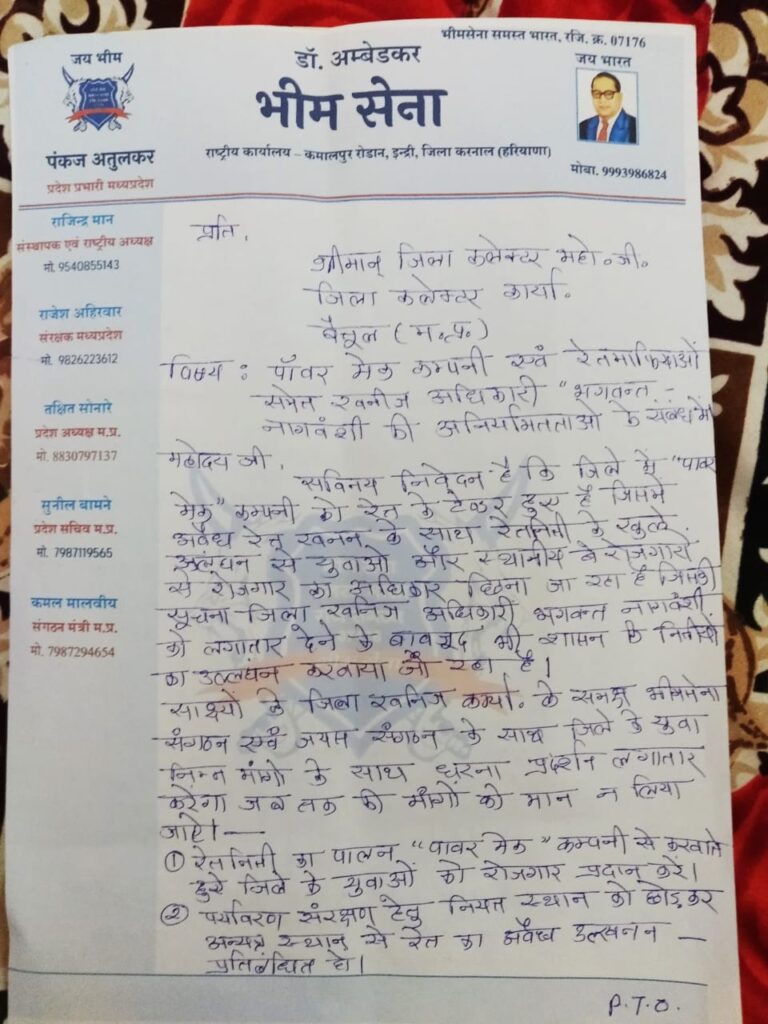 भीमसेना समस्त भारत, रजि. क्र. 07176
जय भीम
डॉ. अम्बेडकर
जय भारत
भीम सेना
पंकज अतुलकर
प्रदेश प्रभारी मध्यप्रदेश
राष्ट्रीय कार्यालय – कमालपुर रोडान, इन्द्री, जिला करनाल (हरियाणा)
मोबा. 9993986824
राजिन्द्र मान
संस्थापक एवं राष्ट्रीय अध्यक्ष
मो. 9540855143
राजेश अहिरवार
संरक्षक मध्यप्रदेश
मो. 9826223612
तक्षित सोनारे
प्रदेश अध्यक्ष म.प्र.
मो. 8830797137
सुनील बामने
प्रदेश सचिव म.प्र.
मो. 7987119565
कमल मालवीय
संगठन मंत्री म.प्र.
मो. 7987294654
प्रति,
श्रीमान् जिला कलेक्टर महो. जी.
जिला कलेक्टर कार्या.
बैतूल (म.प्र.)
विषय : पॉवर मेक कम्पनी एवं रेतमाफियाओं
समेत खनीज अधिकारी "भगवन्त –
नागवंशी की अनियमितताओ के संबंध में
महोदय जी,
सविनय निवेदन है कि जिले में "पावर
मेक" कम्पनी को रेत के टेण्डर हुए है जिसमे
अवैध रेत खनन के साथ रेतनिती के खुले
उलंघन से युवाओ और स्थानीय बेरोजगारो
से रोजगार का अधिकार छिना जा रहा है जिसकी
सूचना जिला खनिज अधिकारी भगवन्त नागवंशी
को लगातार देने के बावजूद भी शासन कि नितीयों
का उल्लघंन करवाया जा रहा है।
साक्ष्यों के जिला खनिज कार्या. के समक्ष भीमसेना
संगठन एवं जयस संगठन के साथ जिले के युवा
निम्न मांगो के साथ धरना प्रदर्शन लगातार
करेंगा जब तक की माँगों को मान न लिया
जाऐ। —
① रेतनिती का पालन "पावर मेक" कम्पनी से करवाते
हुऐ जिले के युवाओं को रोजगार प्रदान करें।
② पर्यावरण संरक्षण हेतु नियत स्थान को छोड़कर
अन्यत्र स्थान से रेत का अवैध उत्खनन —
प्रतिबंधित हो।
P.T.O.